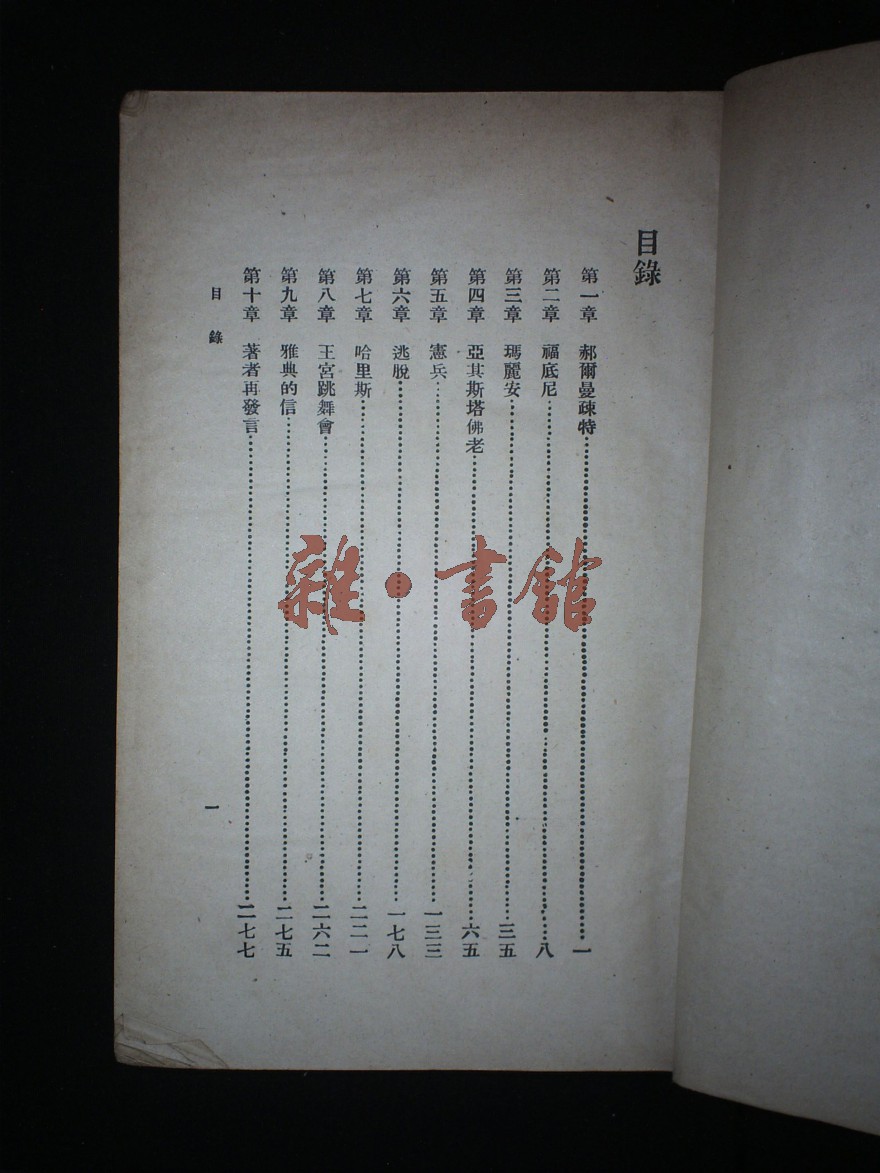 目錄
第一章 郝爾曼疎特……一
第二章 福底尼……八
第三章 瑪麗安……三五
第四章 亞其斯塔佛老……六五
第五章 憲兵……一三三
第六章 逃脫……一七八
第七章 哈里斯……二二一
第八章 王宮跳舞會……二六二
第九章 雅典的信……二七五
第十章 著者再發言……二七七
目錄 一
雜·書館